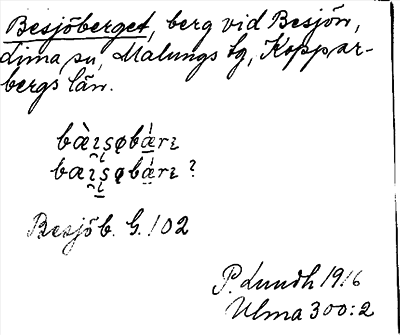 Besjöberget, berg vid Besjön,
Lima sn, Malungs tg, Koppar-
bergs län.
bæ̀ɪʂøbǽrɪ
bæɪʂøbǽrɪ ?
Besjöb. G. 102
P. Lundh 1916
Ulma 300:2